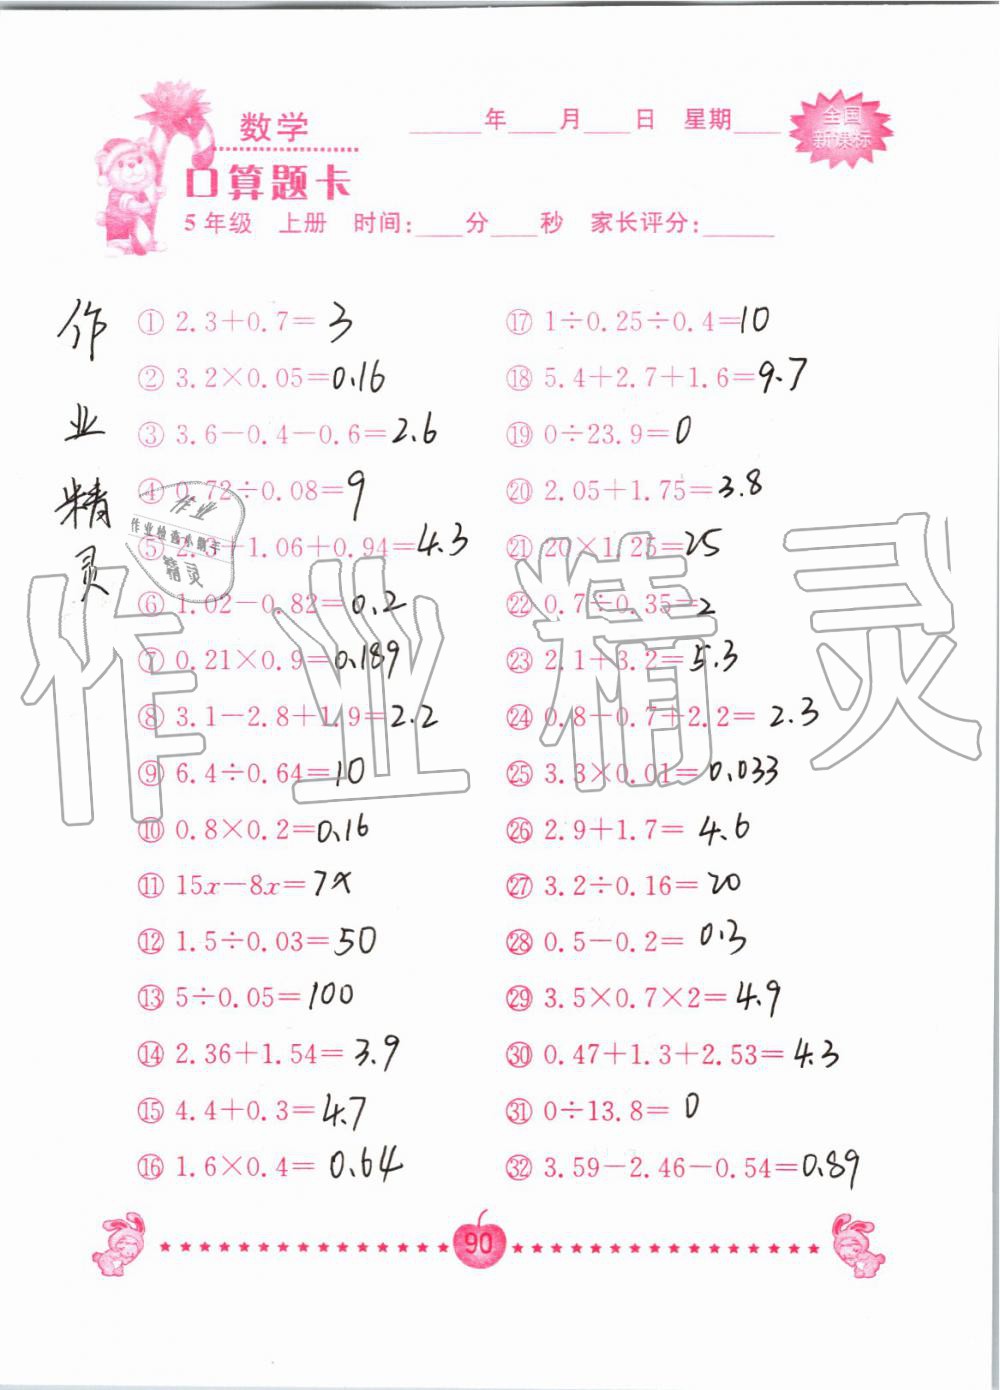 数学
____年____月____日 星期____
全国
新课标
口算题卡
5年级 上册 时间:____分____秒 家长评分:______
作
业
精
灵
① 2.3+0.7=3
② 3.2×0.05=0.16
③ 3.6-0.4-0.6=2.6
④ 0.72÷0.08=9
⑤ 1.06+0.94=4.3
⑥ 1.02-0.82=0.2
⑦ 0.21×0.9=0.189
⑧ 3.1-2.8+1.9=2.2
⑨ 6.4÷0.64=10
⑩ 0.8×0.2=0.16
⑪ 15x-8x=7x
⑫ 1.5÷0.03=50
⑬ 5÷0.05=100
⑭ 2.36+1.54=3.9
⑮ 4.4+0.3=4.7
⑯ 1.6×0.4=0.64
⑰ 1÷0.25÷0.4=10
⑱ 5.4+2.7+1.6=9.7
⑲ 0÷23.9=0
⑳ 2.05+1.75=3.8
㉑ 20×1.25=25
㉒ 0.7÷0.35=2
㉓ 2.1+3.2=5.3
㉔ 0.8-0.7+2.2=2.3
㉕ 3.3×0.01=0.033
㉖ 2.9+1.7=4.6
㉗ 3.2÷0.16=20
㉘ 0.5-0.2=0.3
㉙ 3.5×0.7×2=4.9
㉚ 0.47+1.3+2.53=4.3
㉛ 0÷13.8=0
㉜ 3.59-2.46-0.54=0.89
作业
精灵
作业精灵
90